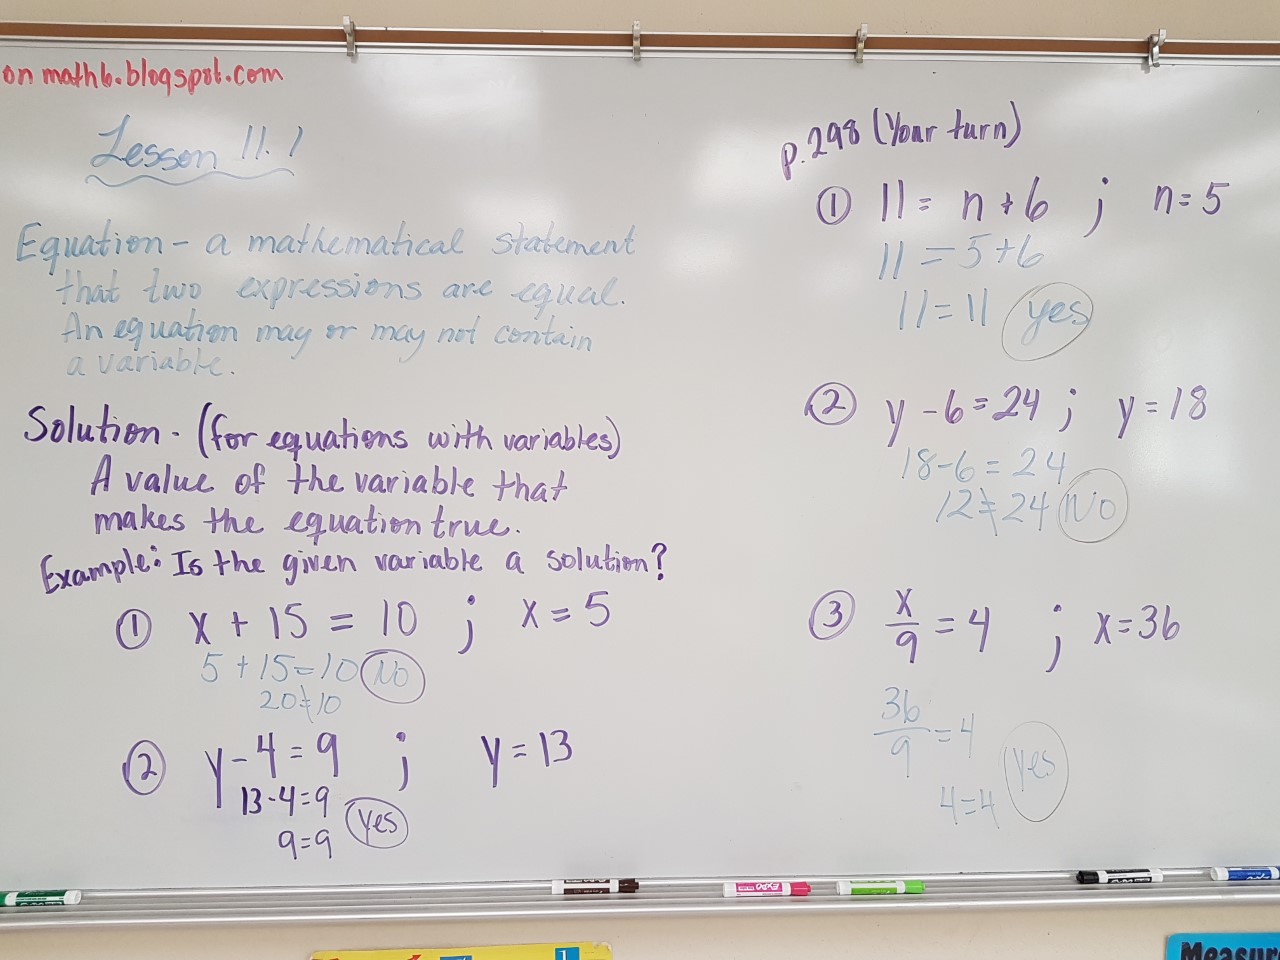 on math6.blogspot.com
Lesson 11.1
Equation - a mathematical statement
that two expressions are equal.
An equation may or may not contain
a variable.
Solution - (for equations with variables)
A value of the variable that
makes the equation true.
Example: Is the given variable a solution?
① x + 15 = 10 ; x = 5
5 + 15 = 10 No
20 ≠ 10
② y - 4 = 9 ; y = 13
13 - 4 = 9
9 = 9 Yes
p. 298 (Your turn)
① 11 = n + 6 ; n = 5
11 = 5 + 6
11 = 11 yes
② y - 6 = 24 ; y = 18
18 - 6 = 24
12 ≠ 24 No
③ x/9 = 4 ; x = 36
36/9 = 4
4 = 4 yes
EXPO
Measur